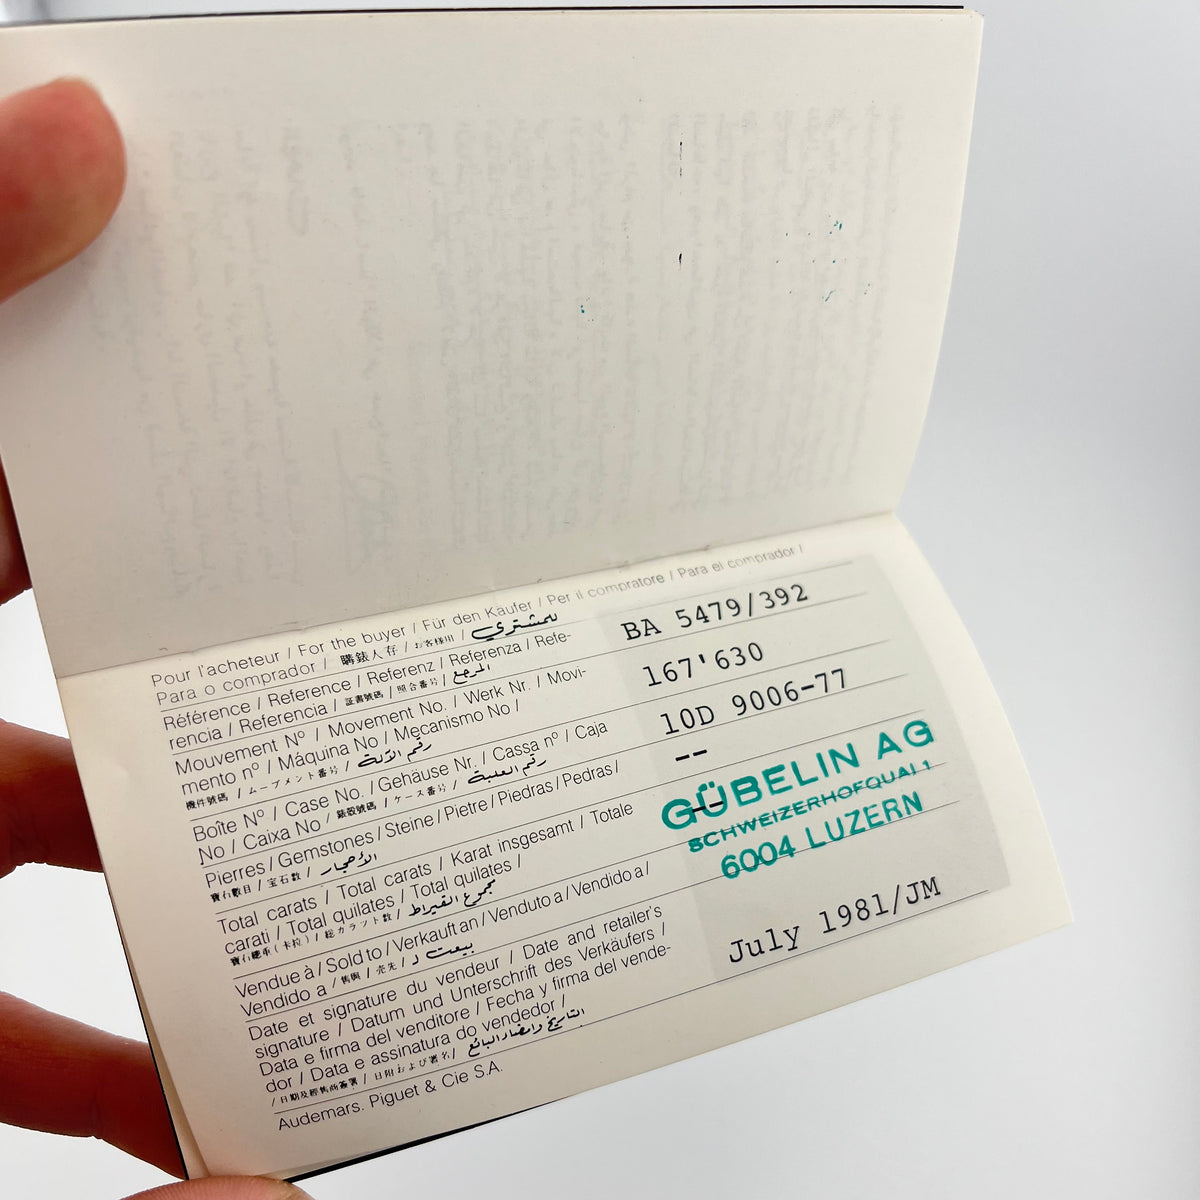 Pour l'acheteur / For the buyer / Für den Käufer / Per il compratore / Para el comprador /
Para o comprador / 購錶人存 / お客様用 / للمشتري
Référence / Reference / Referenz / Referenza / Refe-
rencia / Referencia / 証書號碼 / 照合番号 / المرجع
BA 5479/392
Mouvement Nº / Movement No. / Werk Nr. / Movi-
mento nº / Máquina No / Mecanismo No /
機件號碼 / ムーブメント番号 / رقم الآلة
167'630
Boîte Nº / Case No. / Gehäuse Nr. / Cassa nº / Caja
No / Caixa No / 錶殼號碼 / ケース番号 / رقم العلبة
10D 9006-77
Pierres / Gemstones / Steine / Pietre / Piedras / Pedras /
寶石數目 / 宝石数 / الأحجار
--
Total carats / Total carats / Karat insgesamt / Totale
carati / Total quilates / Total quilates /
寶石總重(卡拉) / 総カラット数 / مجموع القيراط
--
Vendue à / Sold to / Verkauft an / Venduto a / Vendido a /
Vendido a / 售與 / 売先 / بيعت لـ
GÜBELIN AG
SCHWEIZERHOFQUAI 1
6004 LUZERN
Date et signature du vendeur / Date and retailer's
signature / Datum und Unterschrift des Verkäufers /
Data e firma del venditore / Fecha y firma del vende-
dor / Data e assinatura do vendedor /
/ 日期及經售商簽署 / 日附および署名 / التاريخ وامضاء البائع
July 1981/JM
Audemars. Piguet & Cie S.A.